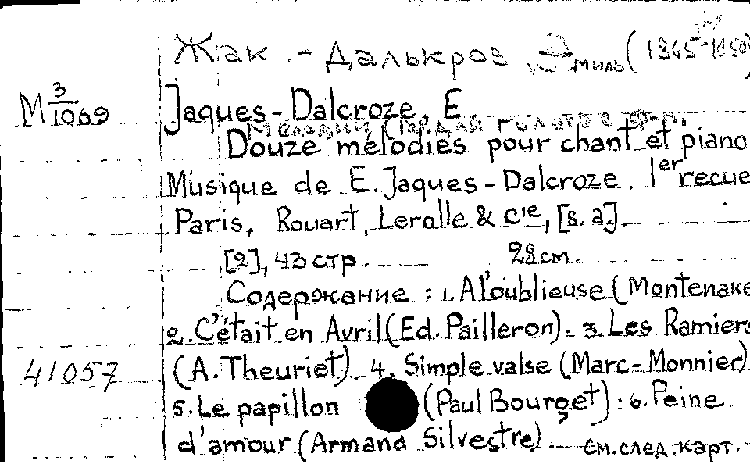 Жак - Далькроз, Эмиль (1865-1950)
М 3/1069
Jaques-Dalcroze, E
Douze mélodies pour chant et piano
Musique de E. Jaques-Dalcroze. 1er recue
Paris, Rouart, Leralle & Cie, [s. a.].
[2], 43 стр. 28 cm.
Содержание : 1. A l'oublieuse (Montenake
2. C'était en Avril (Ed. Pailleron). 3. Les Ramiers
(A. Theuriet) 4. Simple valse (Marc-Monnier)
41057
5. Le papillon (Paul Bourget) : 6. Peine
d'amour (Armand Silvestre) См. след. карт.